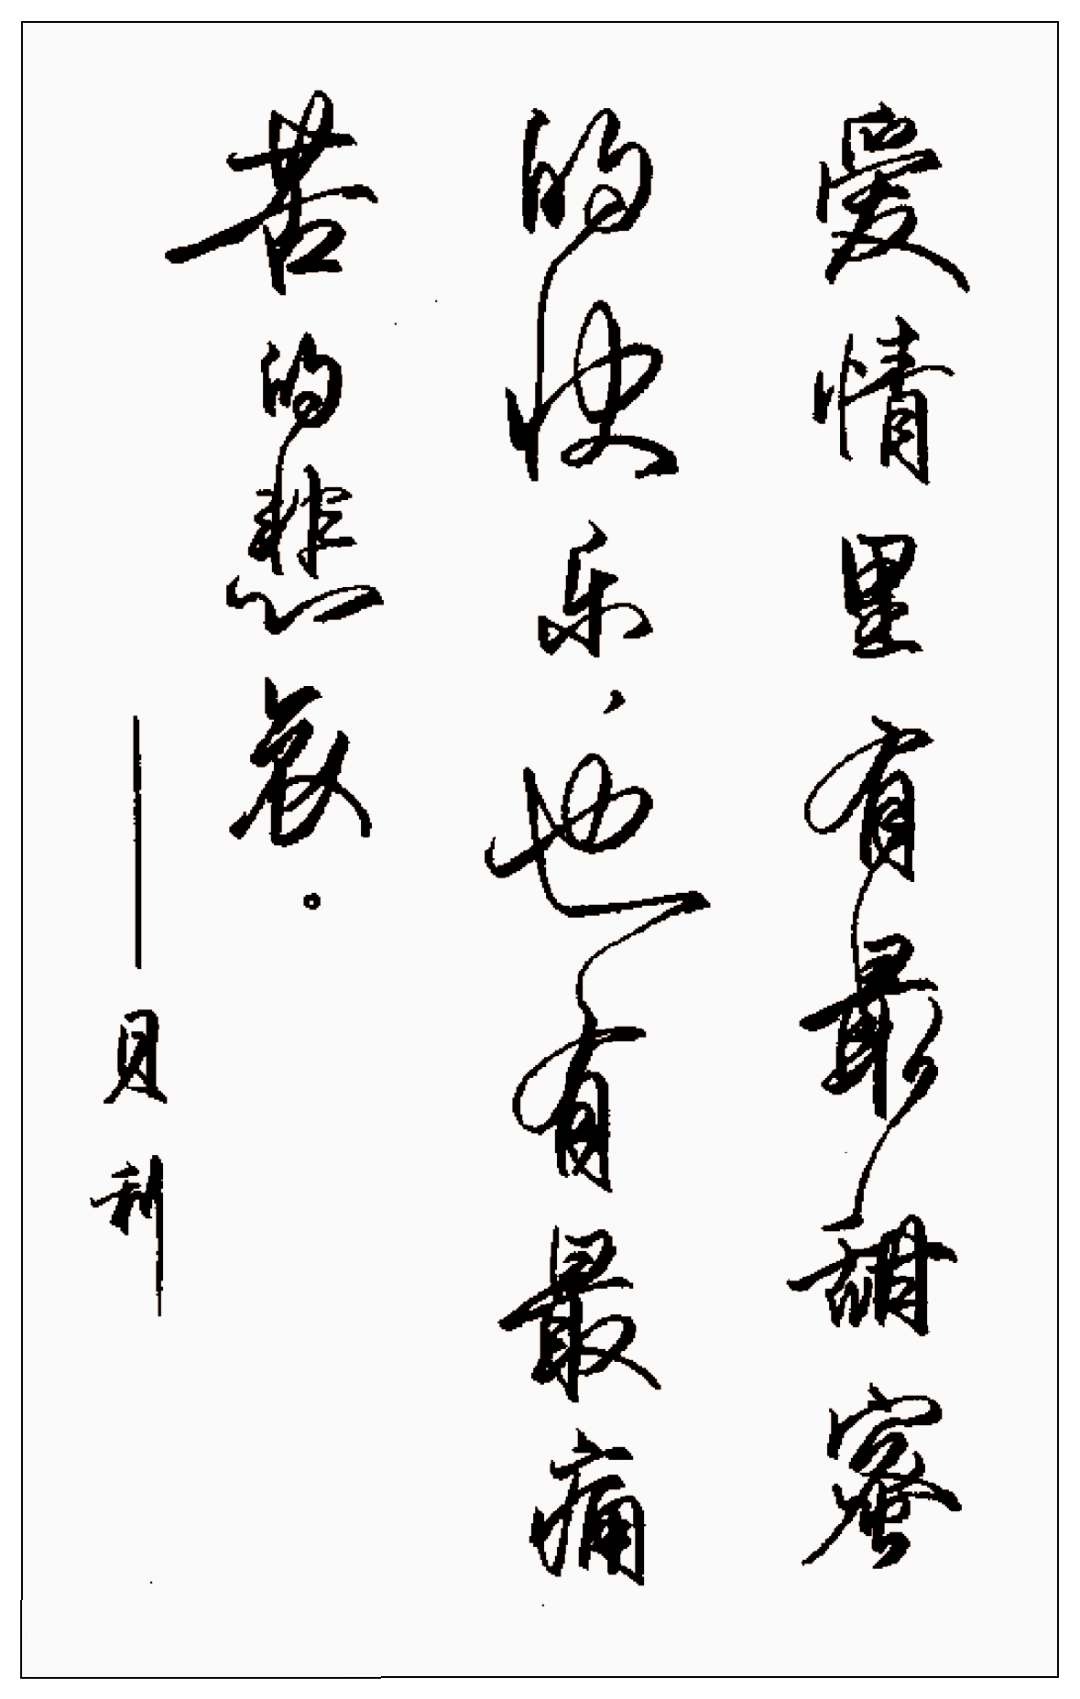 爱情里有最甜蜜
的快乐，也有最痛
苦的悲哀。
——贝利